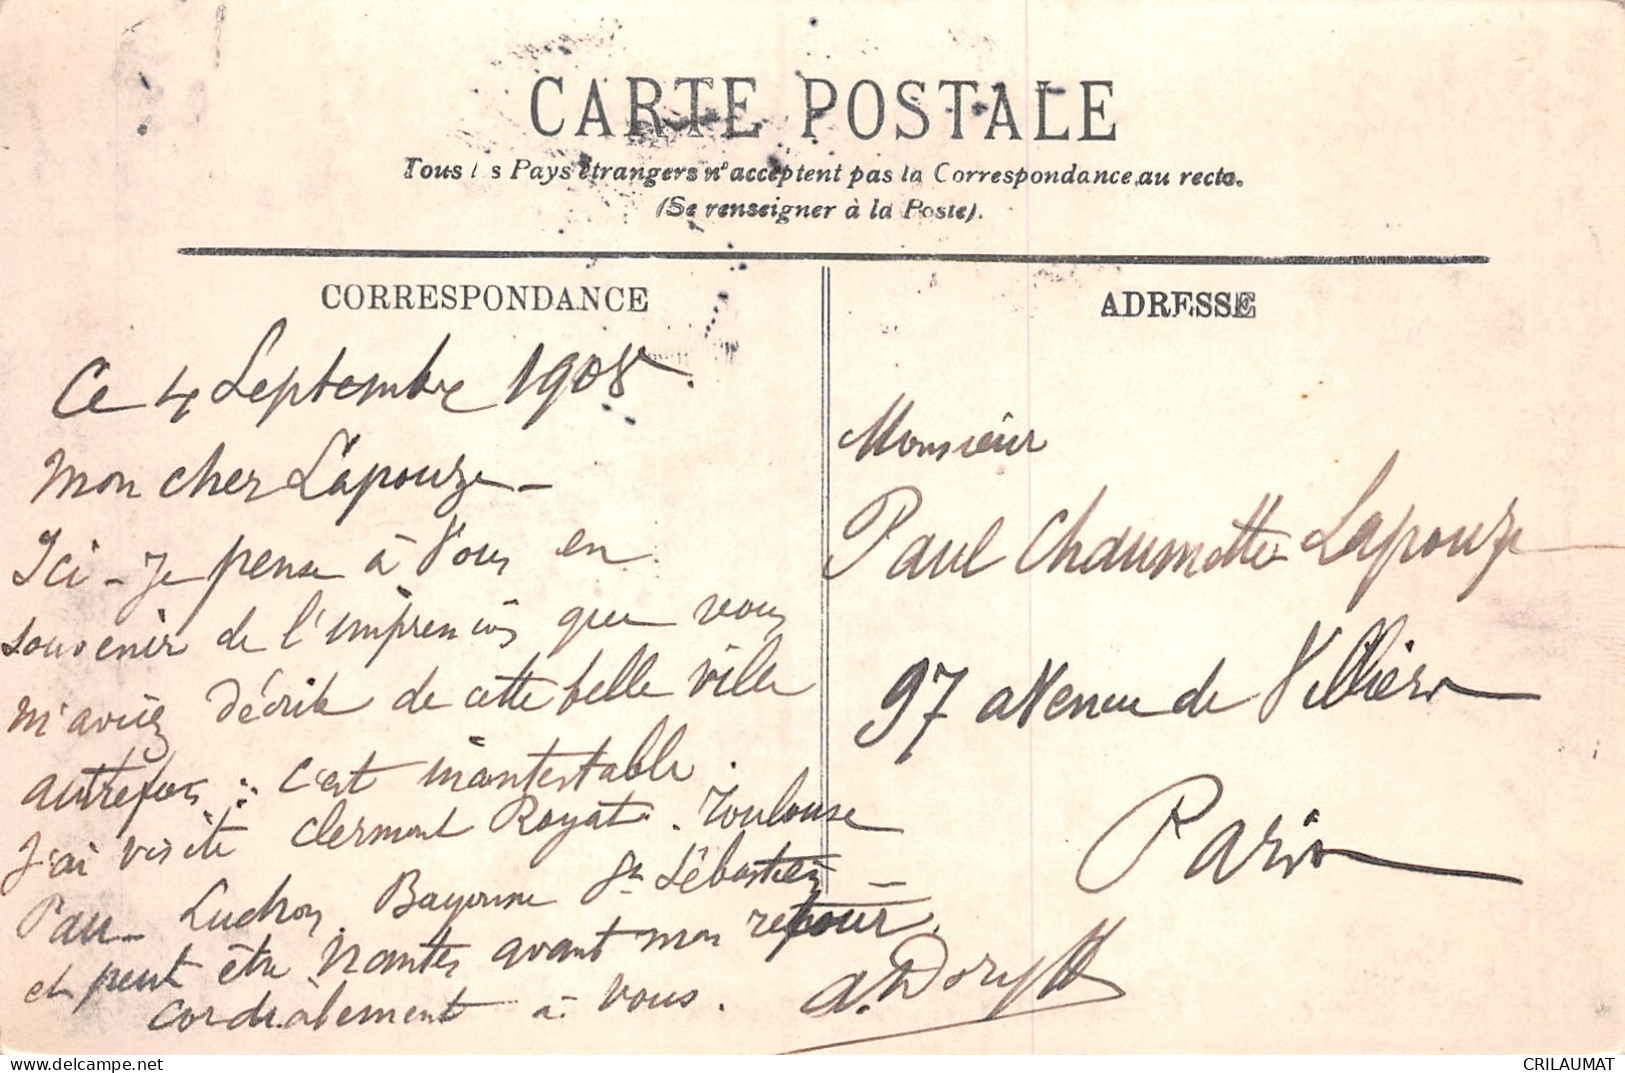 CARTE POSTALE
Tous les Pays étrangers n'acceptent pas la Correspondance au recto.
(Se renseigner à la Poste).
CORRESPONDANCE
ADRESSE
Ce 4 Septembre 1908.
Mon cher Lapouze -
Ici - Je pense à Vous en
souvenir de l'impression que vous
m'aviez décrite de cette belle ville
autrefois : c'est incontestable.
J'ai visité Clermont Royat. Toulouse
Pau - Luchon Bayonne St Sébastien
et peut être Nantes avant mon retour.
cordialement à vous.
Monsieur
Paul Chaumette Lapouze
97 aVenue de Villiers
Paris
www.delcampe.net
CRILAUMAT